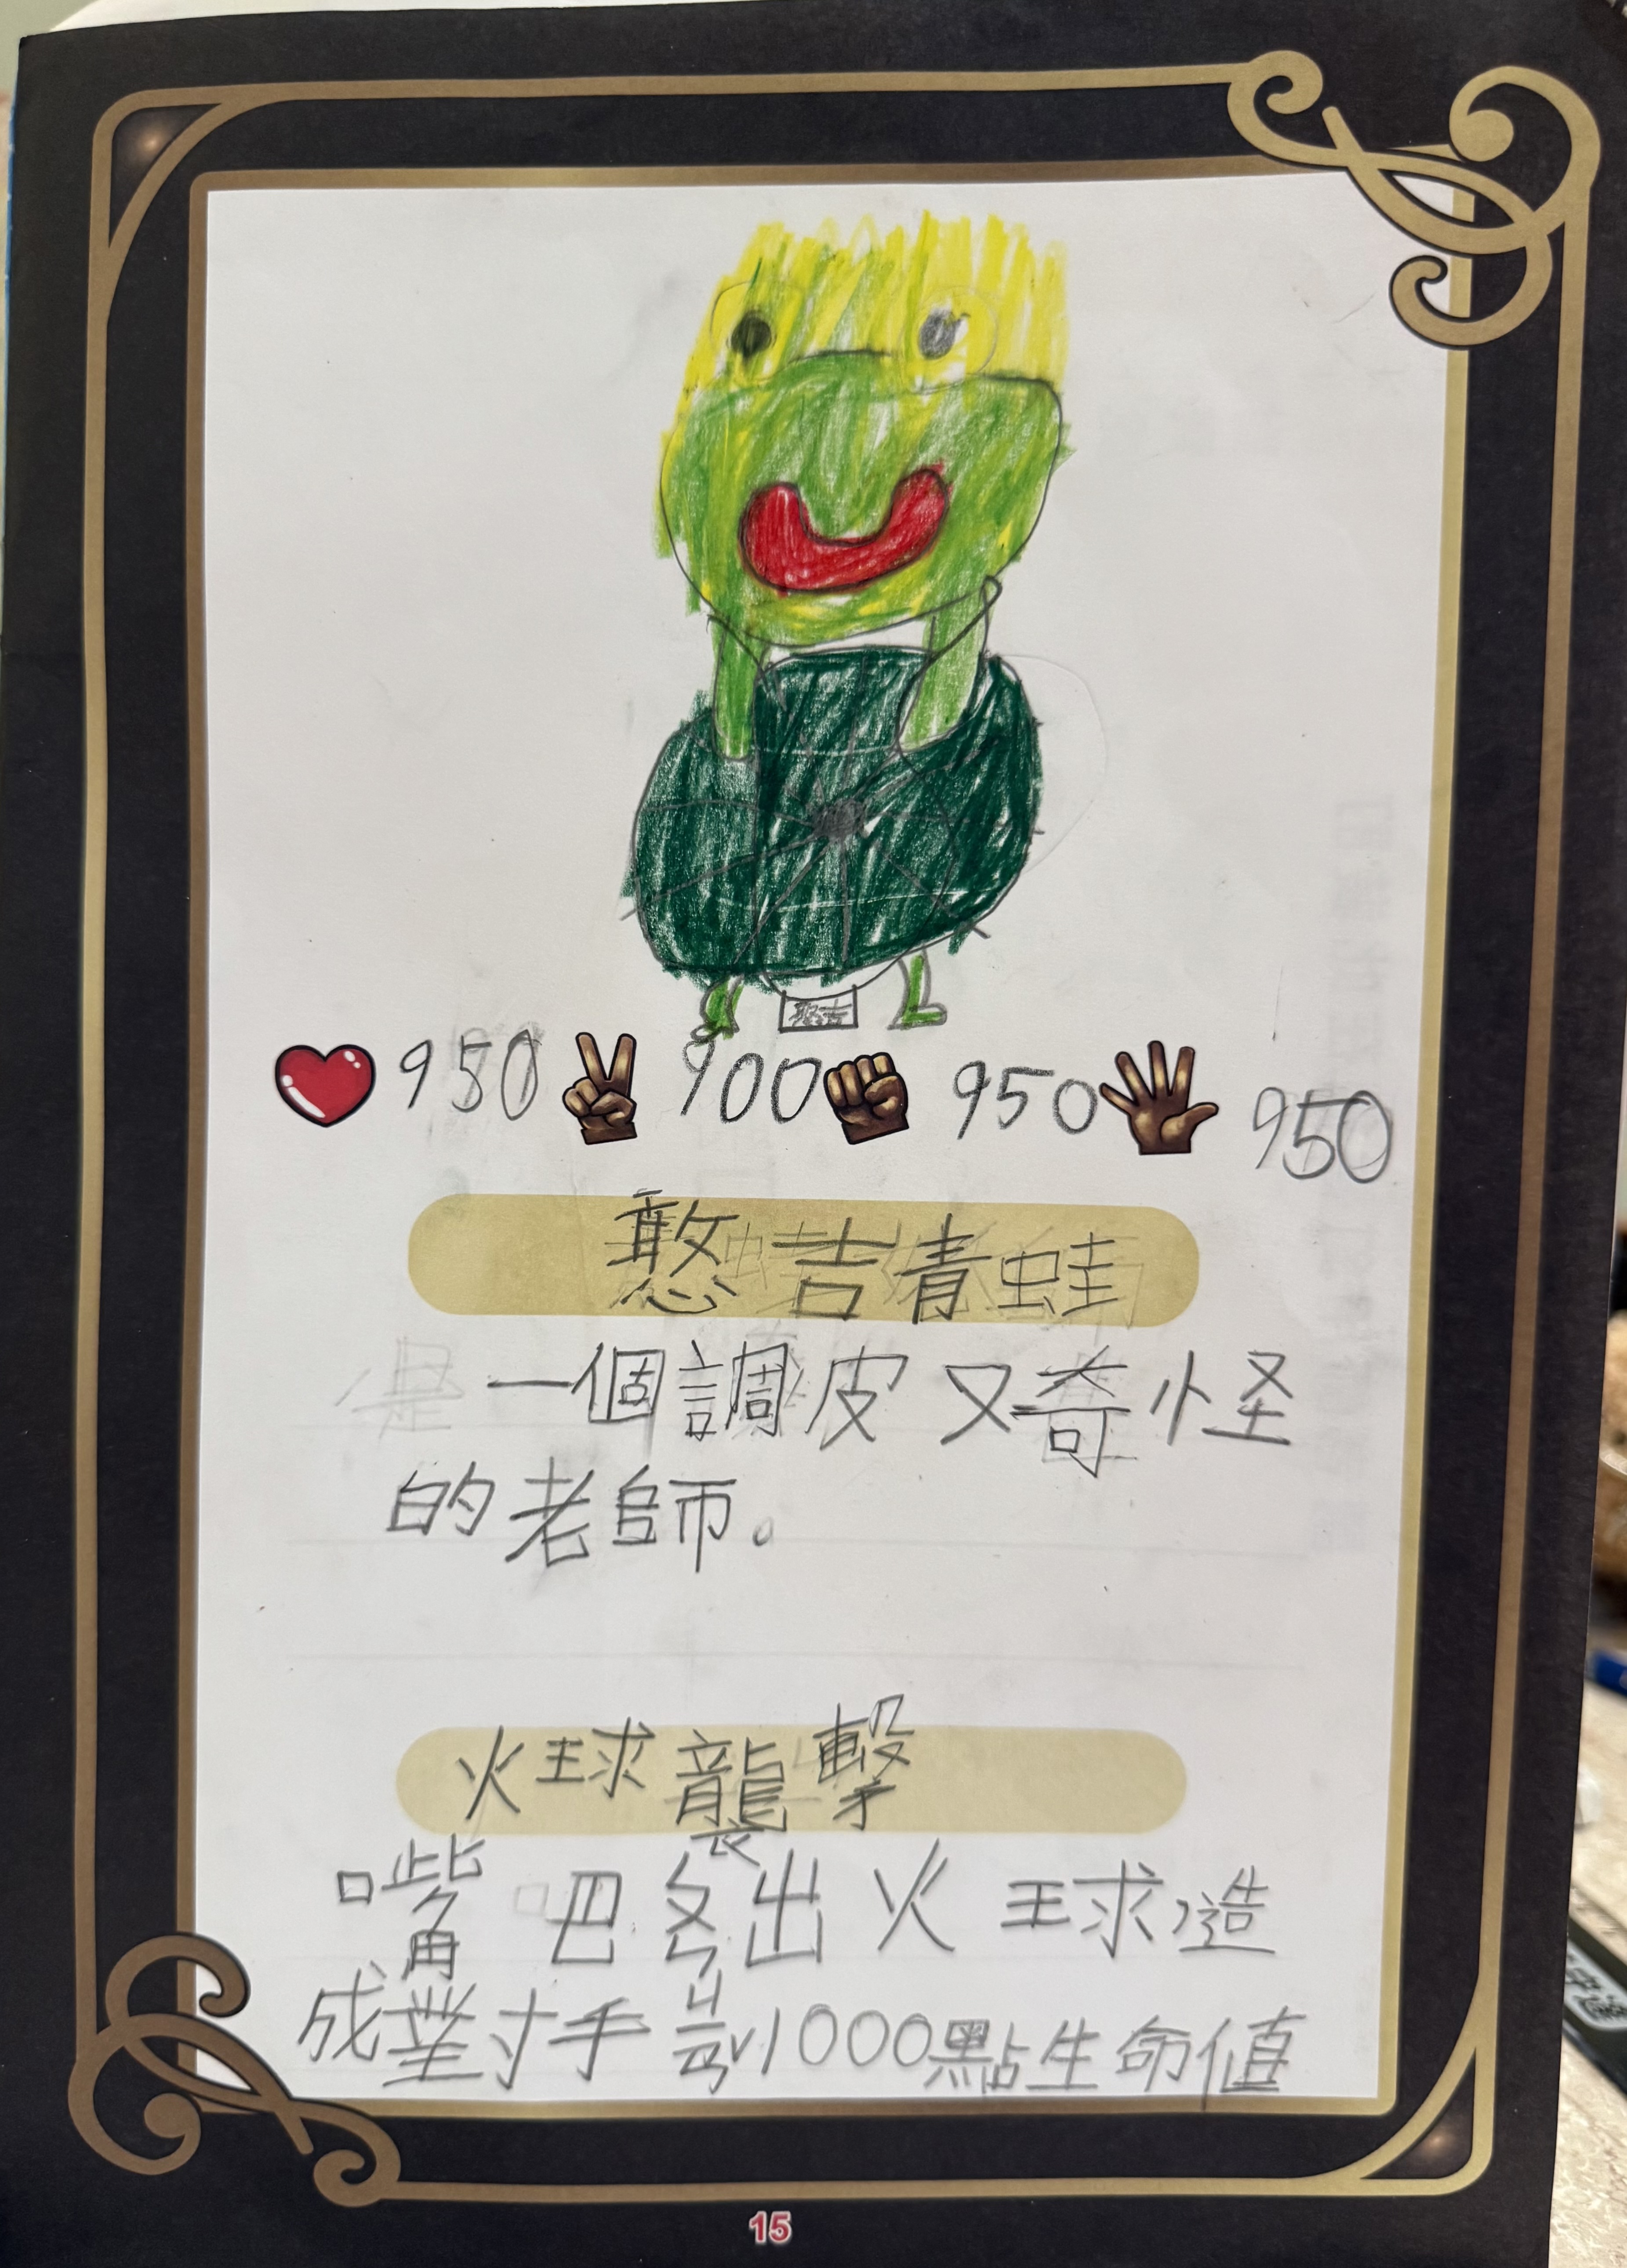 憨吉
950 900 950 950
憨吉青蛙
是一個調皮又奇怪
的老師。
火球襲擊
嘴巴ㄆㄣ出火球造
成對手ㄐㄧㄢˇ1000點生命值
15